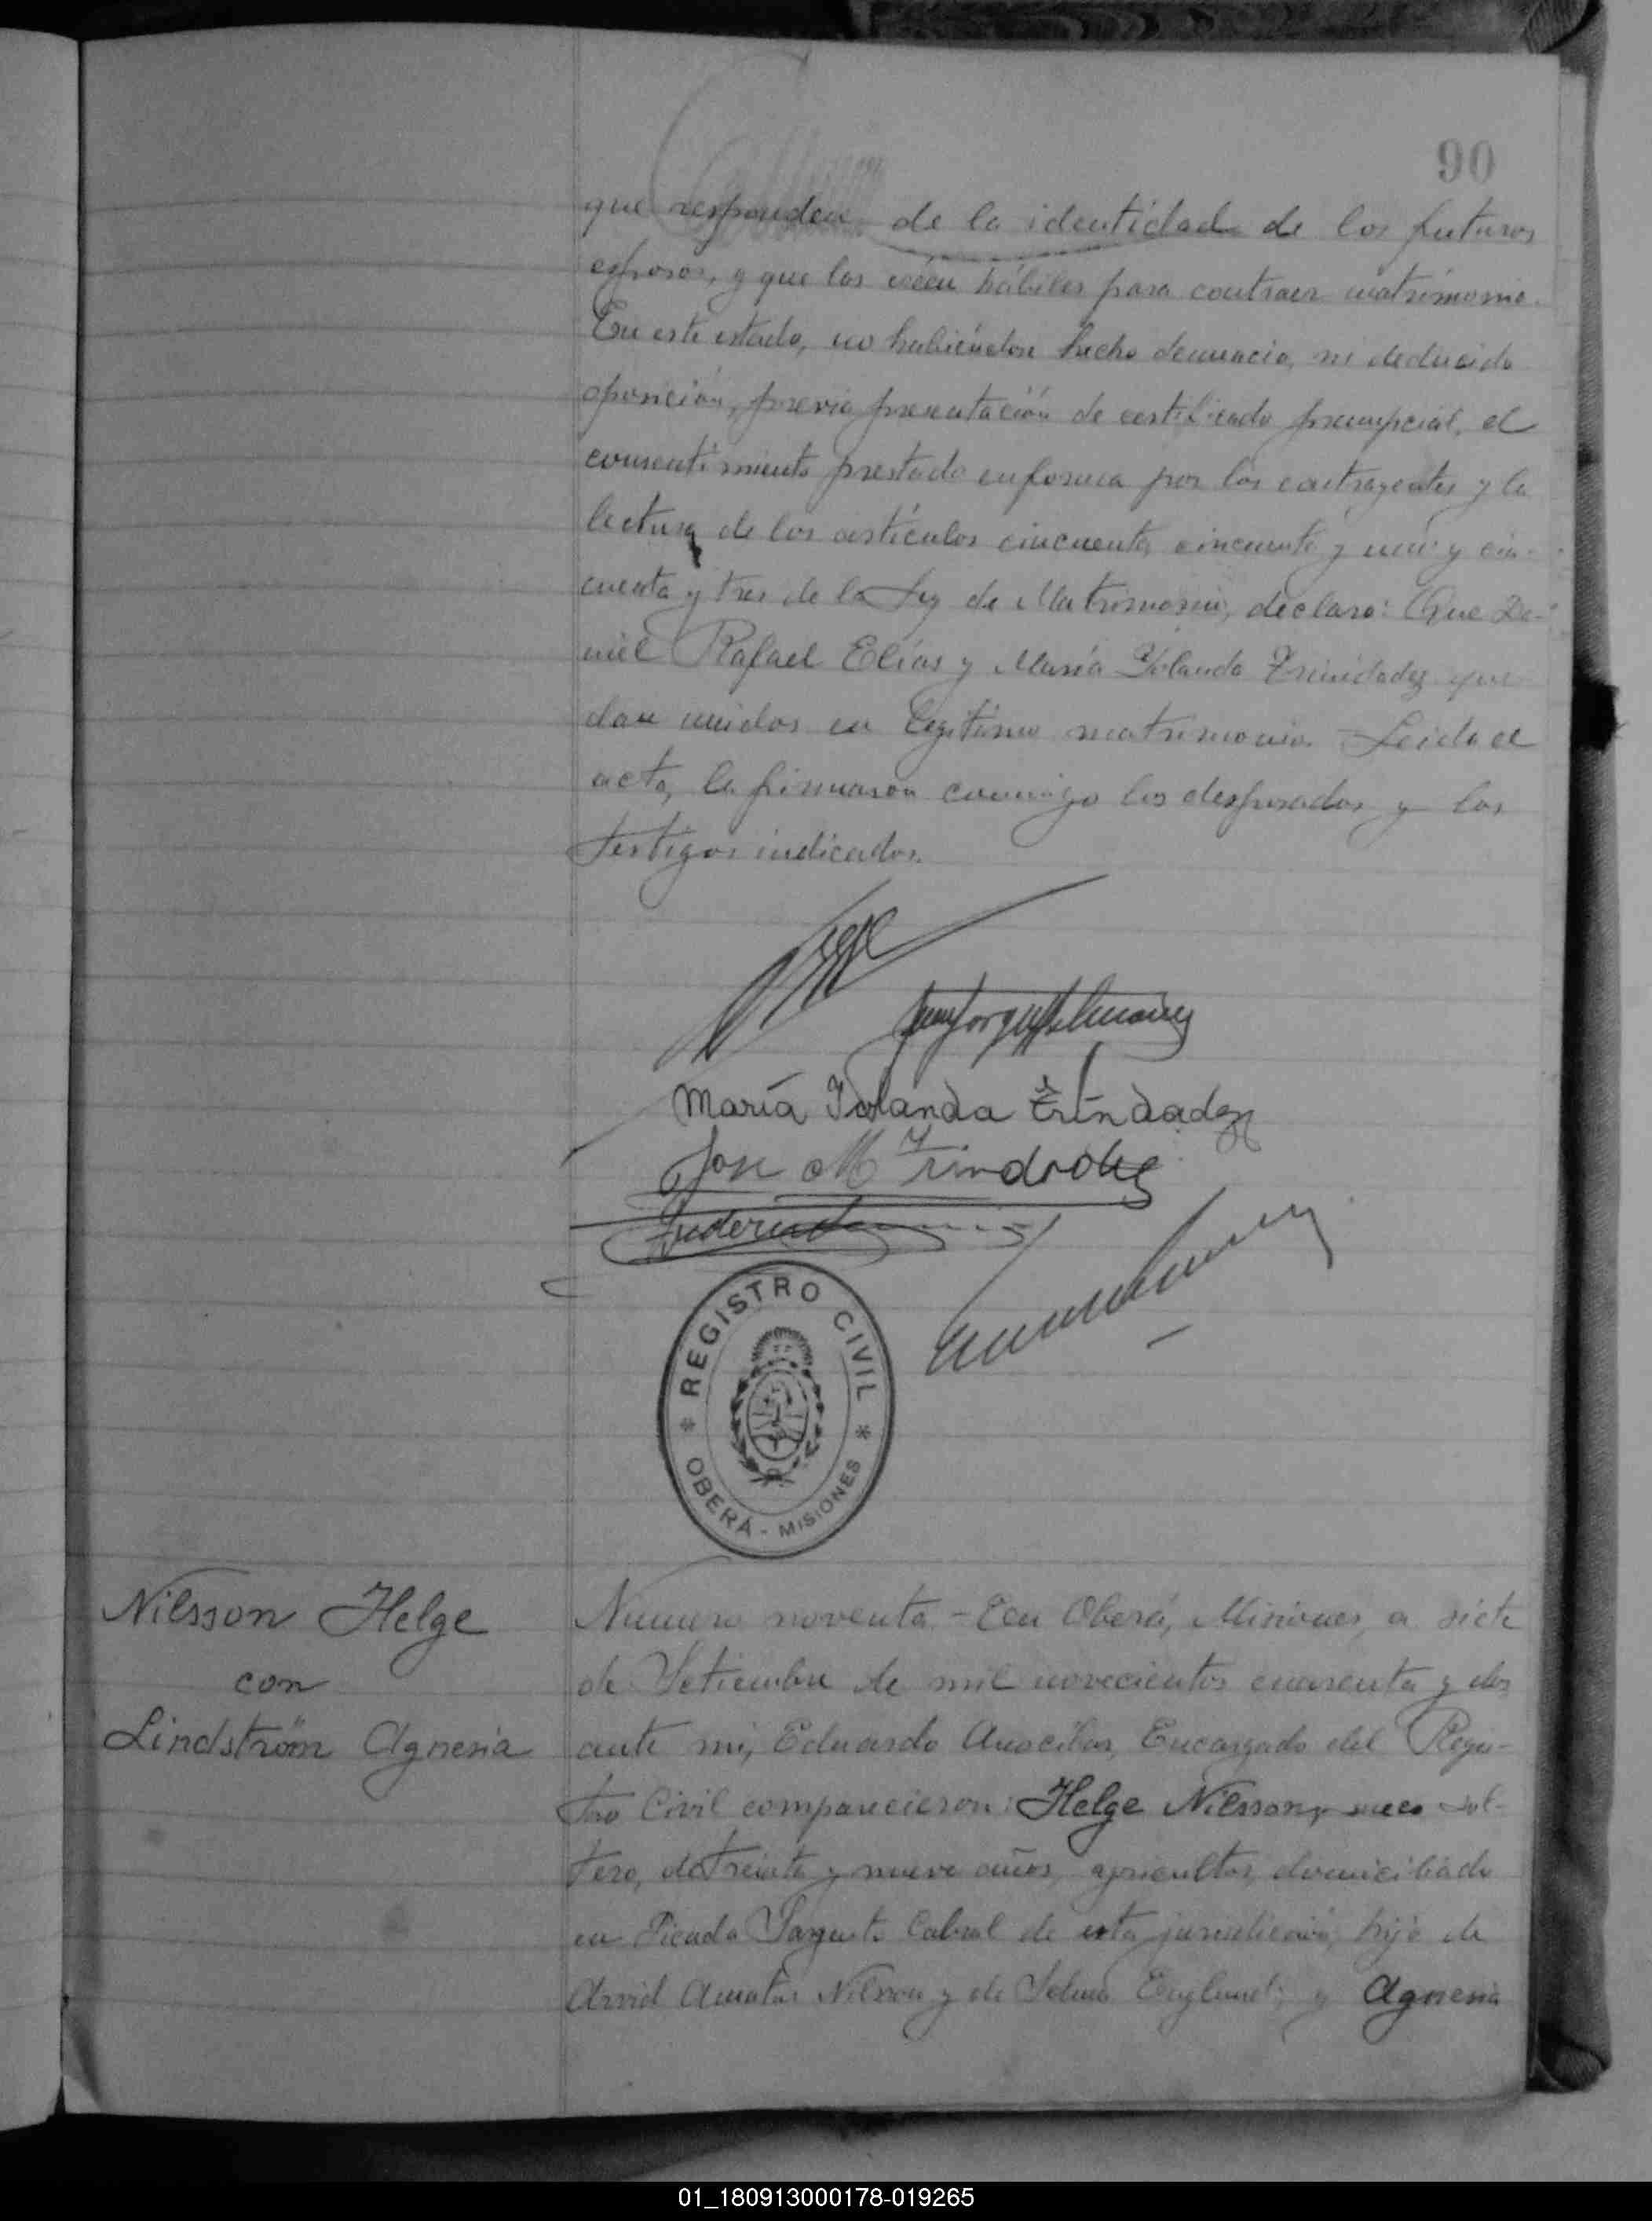 90
que responden de la identidad de los futuros
esposos, y que los creen hábiles para contraer matrimonio.
En este estado, no habiéndose hecho denuncia, ni deducido
oposición, previa presentación de certificado prenupcial, el
consentimiento prestado en forma por los contrayentes y la
lectura de los artículos cincuenta, cincuenta y uno y cin-
cuenta y tres de la Ley de Matrimonio, declaro: Que Da-
niel Rafael Elías y María Yolanda Trindadez que
dan unidos en legítimo matrimonio. Leida el
acta, la firmaron conmigo los desposados y los
testigos indicados.
María Yolanda Trindadez
Jose M Trindade
REGISTRO CIVIL
OBERÁ - MISIONES
Nilsson Helge
con
Lindström Agnesia
Numero noventa - En Oberá, Misiones, a siete
de Setiembre de mil novecientos cuarenta y dos
ante mi, Eduardo Encargado del Regis-
tro Civil comparecieron: Helge Nilsson, sueco sol-
tero, de treinta y nueve años, agricultor, domiciliado
en Picada Sargento Cabral de esta jurisdicción, hijo de
Arvid Nilsson y de Selma Englund; y Agnesia
01_180913000178-019265